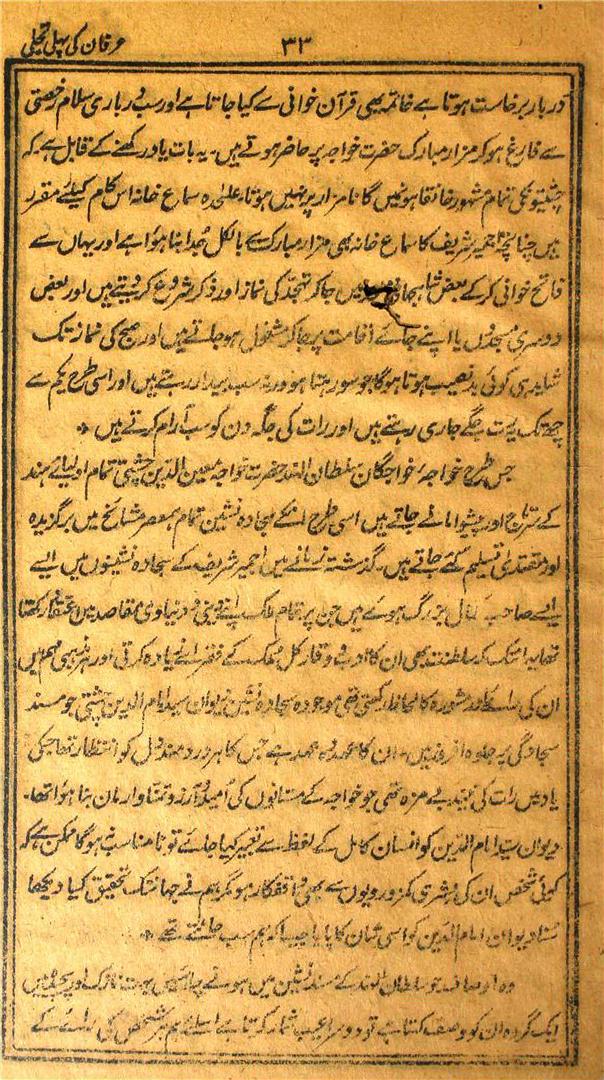 عرفان کی پہلی تجلی
۳۳
دربار برخاست ہوتا ہے خاتمہ بھی قرآن خوانی سے کیا جاتا ہے اور سب درباری سلام رخصتی
سے فارغ ہو کر مزار مبارک حضرت خواجہ پر حاضر ہوتے ہیں۔ یہ بات یاد رکھنے کے قابل ہے کہ
چشتیونکی تمام مشہور خانقاہونمیں گانا مزار پر نہیں ہوتا، علٰحدہ سماع خانہ اس کام کیلئے مقرر
ہیں چنانچہ اجمیر شریف کا سماع خانہ بھی مزار مبارک سے بالکل جُدا بنا ہوا ہے اور یہاں سے
فاتح خوانی کر کے بعض شاہجہانی میں جا کر تہجد کی نماز اور ذکر شروع کر دیتے ہیں اور بعض
دوسری مسجدوں یا اپنے جائے اقامت پر جا کر مشغول ہو جاتے ہیں اور صبح کی نماز تک
شاید ہی کوئی بدنصیب ہوتا ہوگا جو سو رہتا ہو ورنہ سب بیدار رہتے ہیں اور اسی طرح یکم سے
چھ تک رت جگے جاری رہتے ہیں اور رات کی جگہ دن کو سب آرام کرتے ہیں ٭
جس طرح خواجۂ خواجگان سلطان الہند حضرت خواجہ معین الدین چشتی تمام اولیائے ہند
کے سرتاج اور پیشوا مانے جاتے ہیں اسی طرح انکے سجادہ نشین تمام ہمعصر مشائخ میں برگزیدہ
اور مقتدیٰ تسلیم کئے جاتے ہیں۔ گذشتہ زمانے میں اجمیر شریف کے سجادہ نشینوں میں ایسے
ایسے صاحب کمال بزرگ ہوئے ہیں جن پر تمام ملک اپنے دینی و دنیاوی مقاصد میں رکھتا
تھا یہانتک کہ سلطنت بھی ان کا ادب و وقار کل ملک کے فقرا سے زیادہ کرتی اور ہر مہم میں
ان کی رائے اور مشورہ کا لحاظ رکھتی تھی موجودہ سجادہ نشین دیوان سید امام الدین چشتی جو مسند
سجادگی پر جلوہ افروز ہیں۔ ان کا عہد وہ عہد ہے جس کا ہر درد مند دل کو انتظار تھا جسکی
یاد میں رات کی نیند بے مزہ تھی جو خواجہ کے مستانوں کی اُمید و آرزو و تمنا و ارمان بنا ہوا تھا۔
دیوان سید امام الدین کو انسان کامل کے لفظ سے تعبیر کیا جائے تو نامناسب نہ ہوگا ممکن ہے کہ
کوئی شخص ان کی بشری کمزوریوں سے بھی واقفکار ہو مگر ہم نے جہانتک تحقیق کیا دیکھا
سنا دیوان امام الدین کو اسی شان کا پایا جیسا کہ ہم سب چاہتے تھے ٭
وہ اوصاف جو سلطان الہند کے مسند نشین میں ہونے چاہئیں بہت نازک اور پیچیدہ ہیں
ایک گروہ ان کو وصف کہتا ہے تو دوسرا عیب شمار کرتا ہے اسلئے ہم ہر شخص کی رائے کے